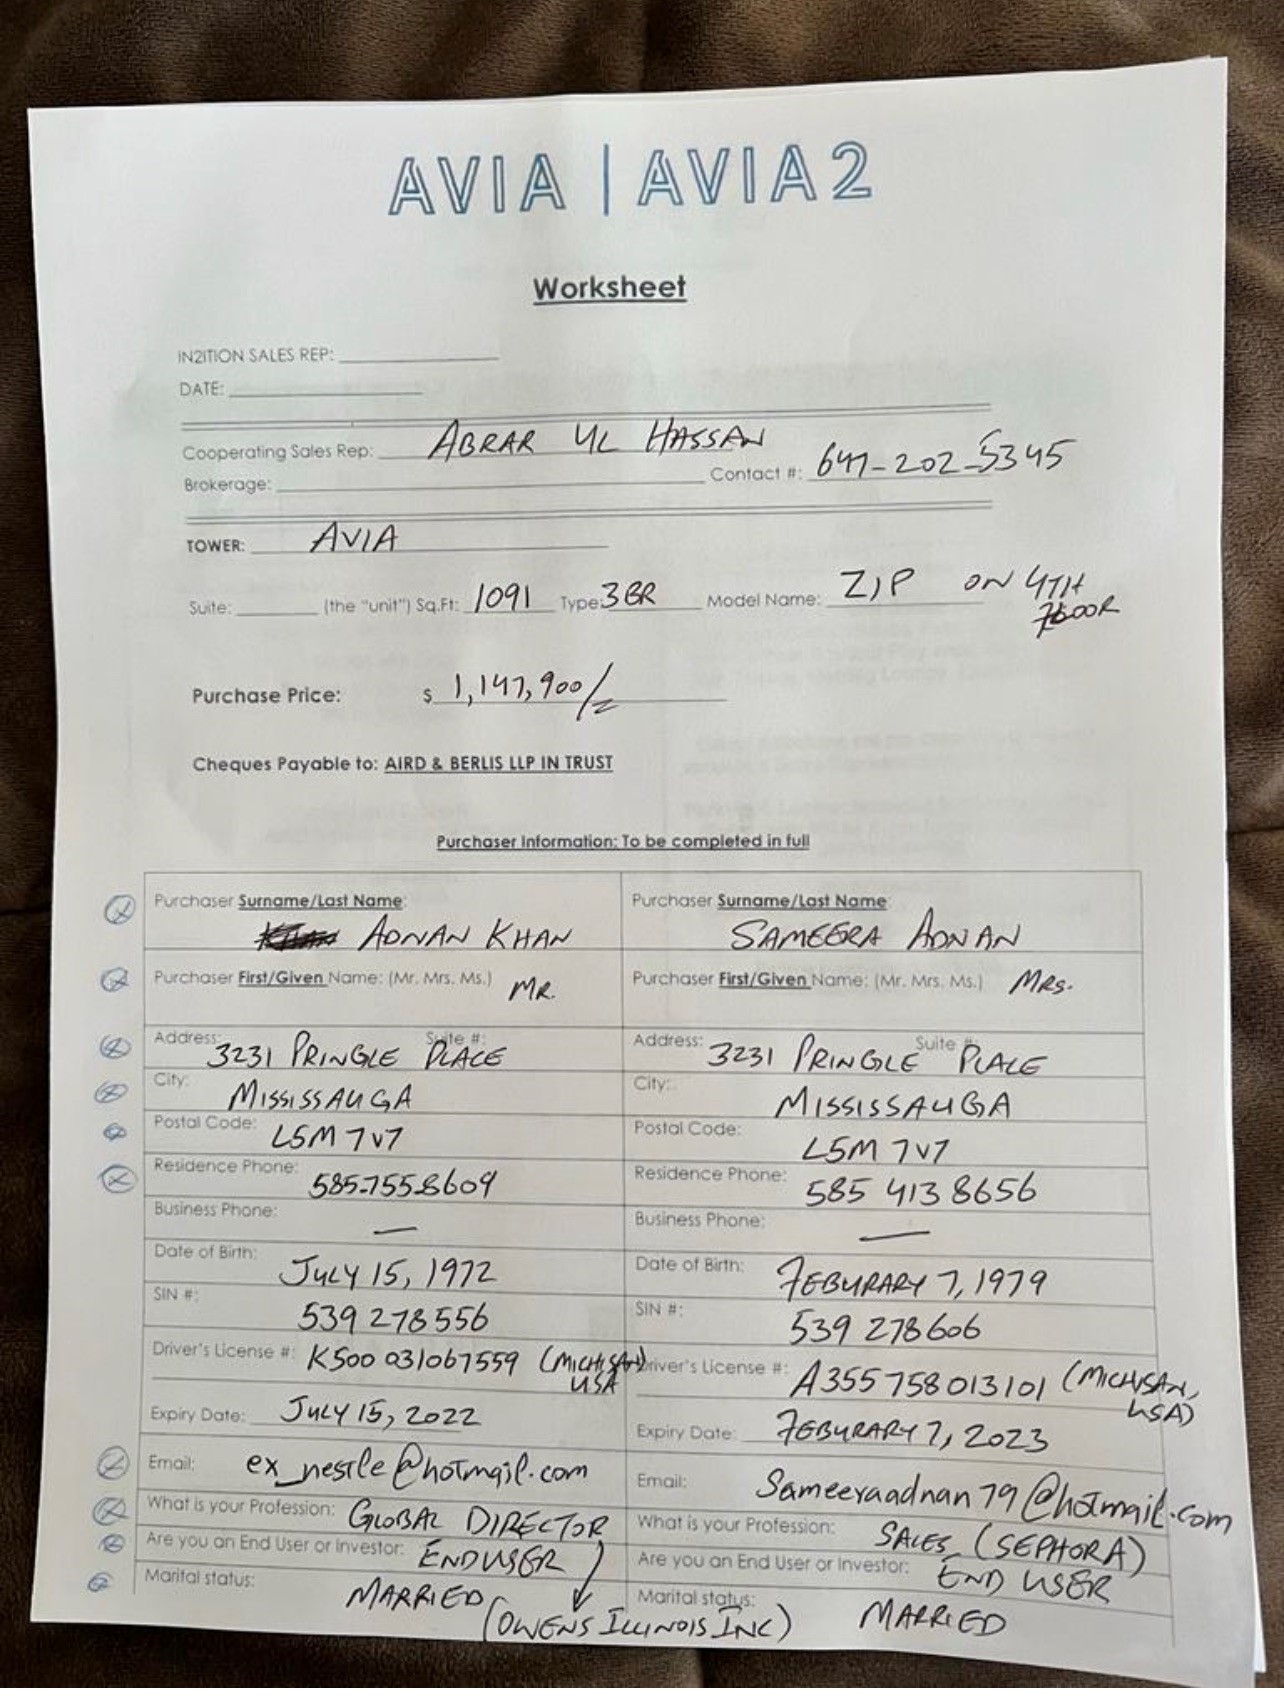 AVIA | AVIA2
Worksheet
IN2ITION SALES REP:
DATE:
Cooperating Sales Rep: ABRAR UL HASSAN
Brokerage: Contact #: 647-202-5345
TOWER: AVIA
Suite: (the "unit") Sq.Ft: 1091 Type: 3BR Model Name: ZIP ON 4TH
FLOOR
Purchase Price: $ 1,147,900/=
Cheques Payable to: AIRD & BERLIS LLP IN TRUST
Purchaser Information: To be completed in full
Purchaser Surname/Last Name:
ADNAN KHAN
Purchaser Surname/Last Name
SAMEERA ADNAN
Purchaser First/Given Name: (Mr. Mrs. Ms.) MR.
Purchaser First/Given Name: (Mr. Mrs. Ms.) MRS.
Address: Suite #:
3231 PRINGLE PLACE
Address: Suite #:
3231 PRINGLE PLACE
City: MISSISSAUGA
City: MISSISSAUGA
Postal Code: L5M 7V7
Postal Code: L5M 7V7
Residence Phone: 585-755-8609
Residence Phone: 585 413 8656
Business Phone: —
Business Phone: —
Date of Birth: JULY 15, 1972
Date of Birth: FEBURARY 7, 1979
SIN #: 539 278 556
SIN #: 539 278 606
Driver's License #: K500 031067559 (MICHIGAN)
USA
Driver's License #: A355 758 013101 (MICHIGAN,
USA)
Expiry Date: JULY 15, 2022
Expiry Date: FEBURARY 7, 2023
Email: ex_nestle@hotmail.com
Email: Sameeraadnan79@hotmail.com
What is your Profession: GLOBAL DIRECTOR
What is your Profession: SALES (SEPHORA)
Are you an End User or Investor: END USER
Are you an End User or Investor: END USER
Marital status: MARRIED
(OWENS ILLINOIS INC)
Marital status: MARRIED